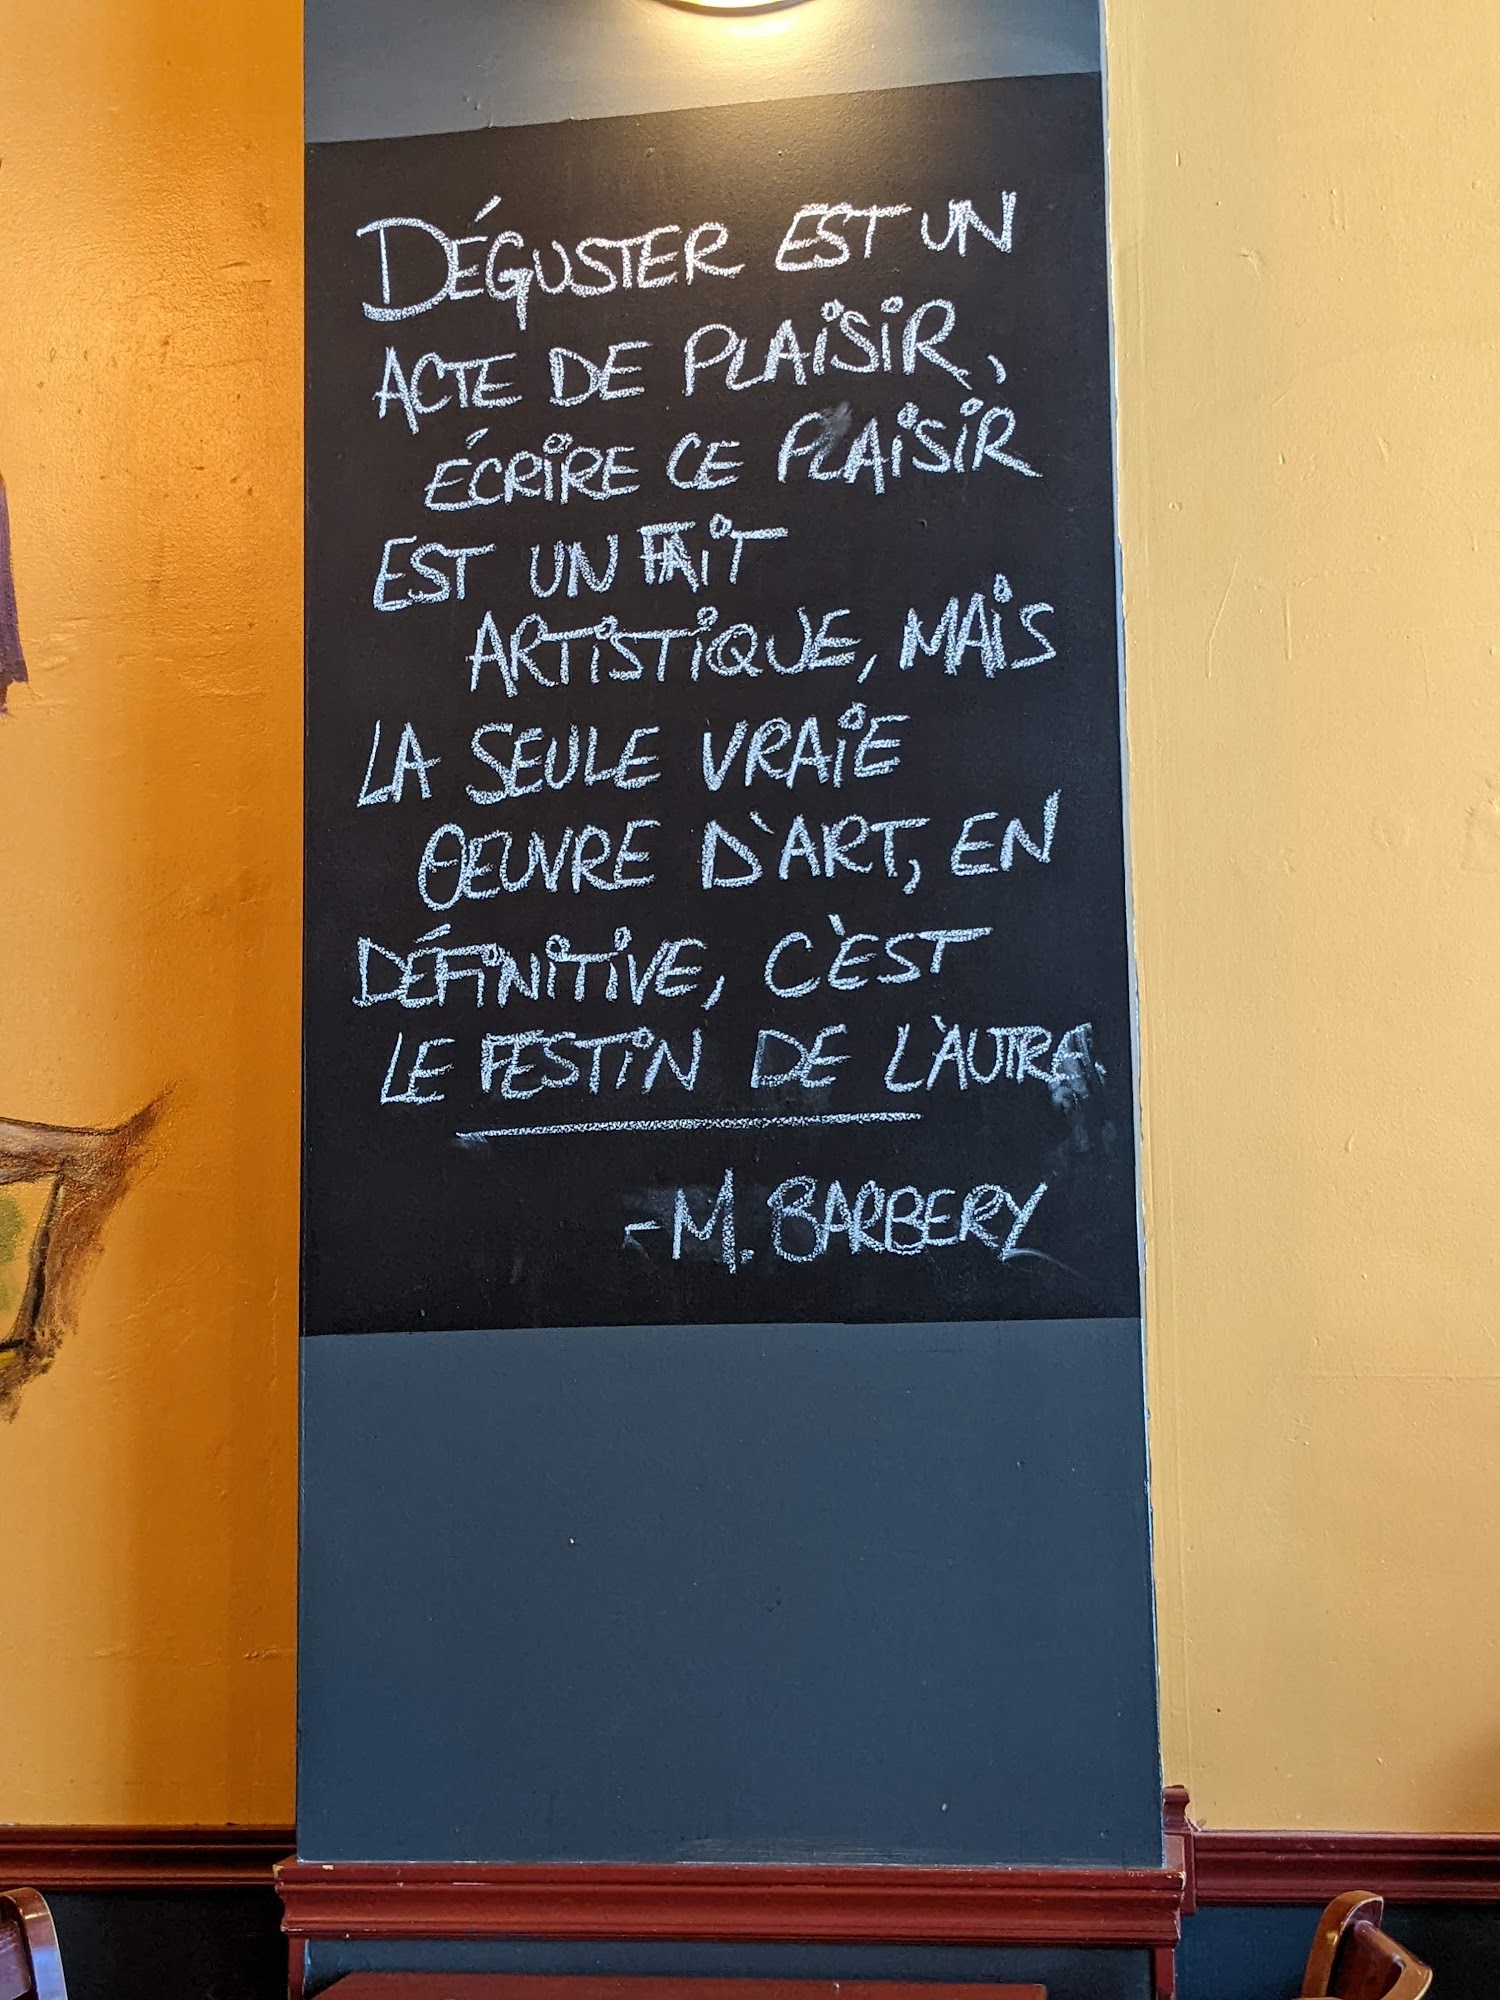 DÉGUSTER EST UN
ACTE DE PLAISIR,
ÉCRIRE CE PLAISIR
EST UN FAIT
ARTISTIQUE, MAIS
LA SEULE VRAIE
ŒUVRE D'ART, EN
DÉFINITIVE, C'EST
LE FESTIN DE L'AUTRE.
-M. BARBERY